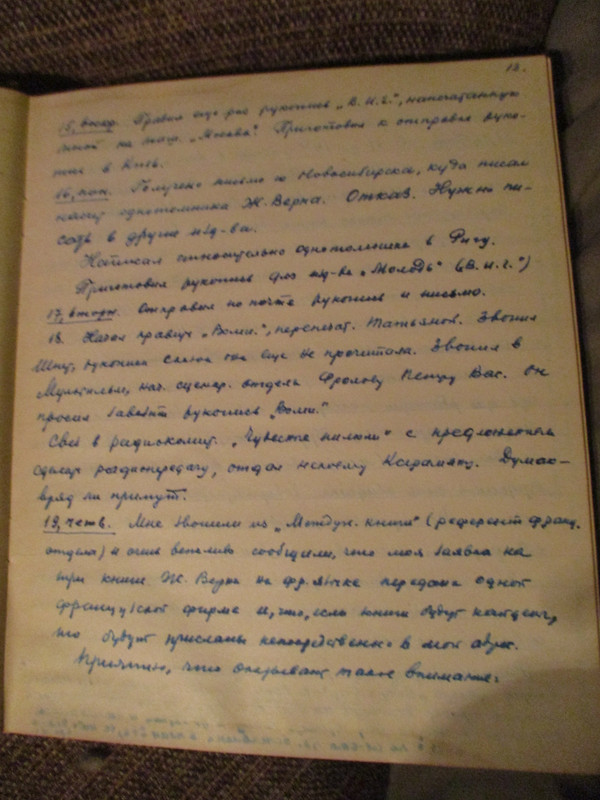 12.
15, воскр. Правил еще раз рукопись „В. и. г.“, напечатанную
мной на маш. „Москва“. Приготовил к отправке руко-
пись в Киев.
16, пон. Получено письмо из Новосибирска, куда писал
насчет однотомника Ж. Верна. Отказ. Нужно пи-
сать в другие изд-ва.
Написал относительно однотомника в Ригу.
Приготовил рукопись для изд-ва „Молодь“ („В. и г.“)
17, вторн. Отправил по почте рукопись и письмо.
18. Начал правку „Волш.“, перепечат. Татьяной. Звонил
рукопись она еще не прочитала. Звонил в
Мультфильм, нач. сценар. отдела Фролову Петру Вас. Он
просил завезти рукопись „Волш.“
Свез в радиокомит. с предложением
сделать радиопередачу, отдал некоему Думаю—
вряд ли примут.
19, четв. Мне звонили из „Междун. книги“ (референт франц.
отдела) и очень вежливо сообщили, что моя заявка на
три книги Ж. Верна на фр. языке передана одной
французской фирме и, что, если книги будут найдены,
то будут присланы непосредственно в мой адрес.
Приятно, что оказывают такое внимание.